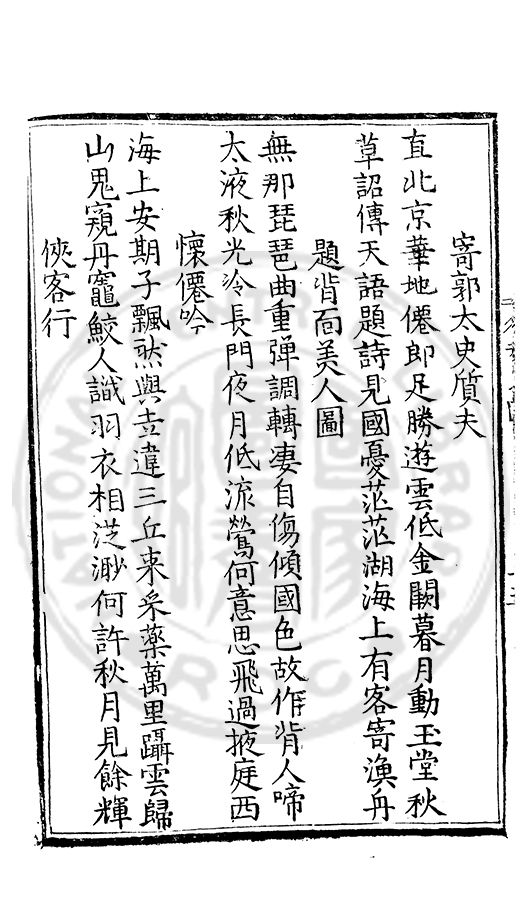 寄郭太史質夫
直北京華地僊郎足勝遊雲低金闕暮月動玉堂秋
草詔傳天語題詩見國憂茫茫湖海上有客寄漁舟
題背面美人圖
無那琵琶曲重彈調轉淒自傷傾國色故作背人啼
太液秋光冷長門夜月低流鶯何意思飛過掖庭西
懷僊吟
海上安期子飄然與世違三丘來采藥萬里躡雲歸
山鬼窺丹竈鮫人識羽衣相從渺何許秋月見餘輝
俠客行